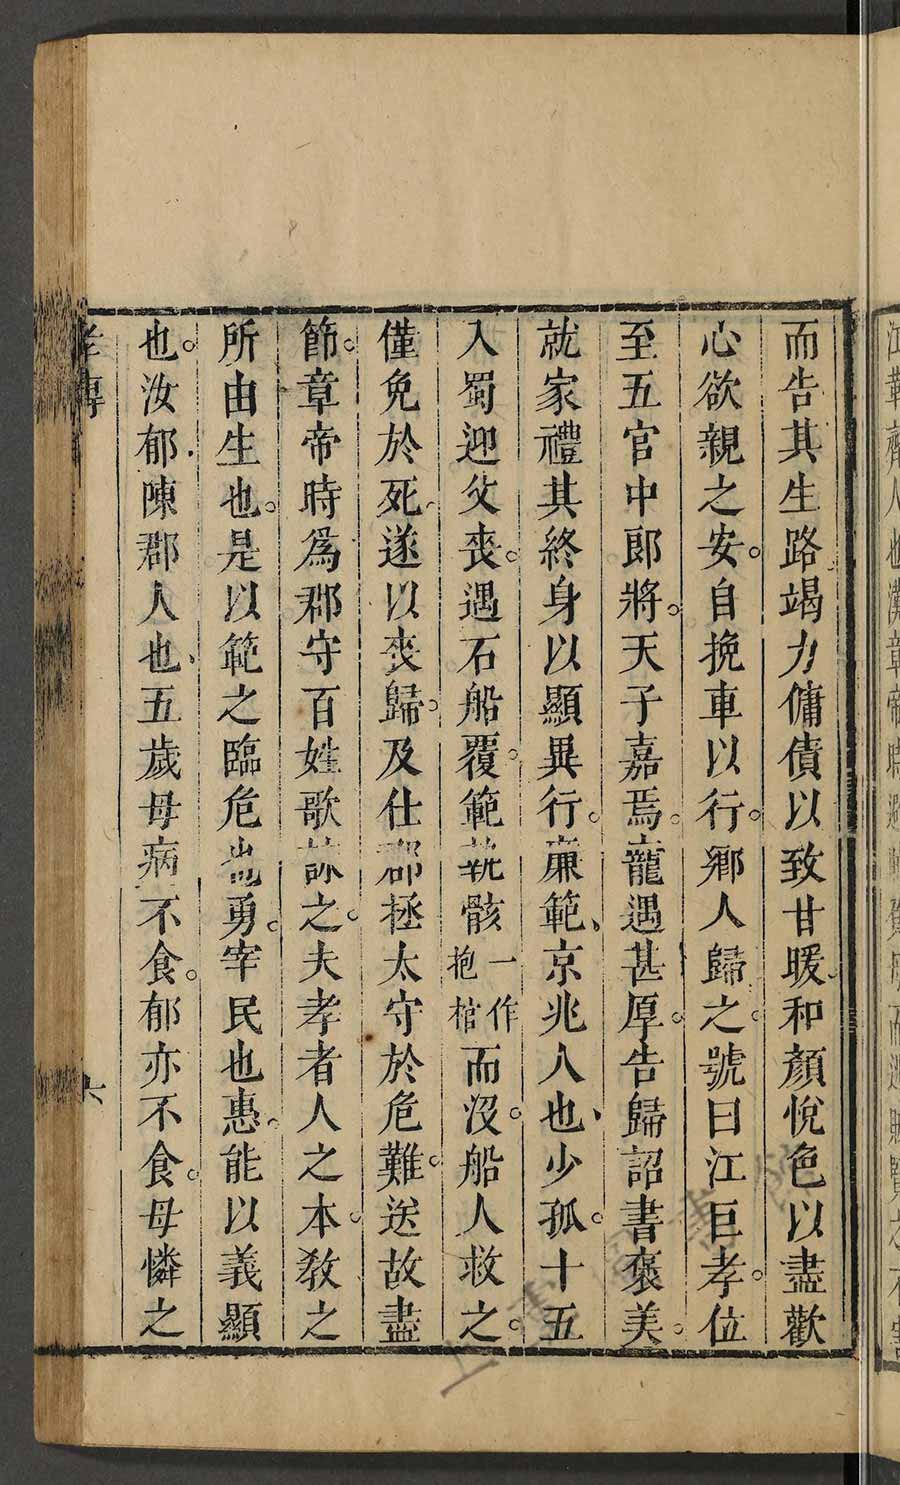 而告其生路竭力傭債以致甘暖和顏悅色以盡歡
心欲親之安。自挽車以行。鄉人歸之。號曰江巨孝。位
至五官中郎將。天子嘉焉。寵遇甚厚。告歸詔書褒美。
就家禮其終身以顯異行。廉範、京兆人也、少孤。十五
入蜀迎父喪。遇石船覆。範執骸一作抱棺而沒。船人救之。
僅免於死。遂以喪歸。及仕郡拯太守於危難。送故盡
節。章帝時爲郡守百姓歌詠之。夫孝者人之本。教之
所由生也。是以範之臨危也勇。宰民也惠。能以義顯
也。汝郁、陳郡人也、五歲母病不食。郁亦不食。母憐之
孝傳
六